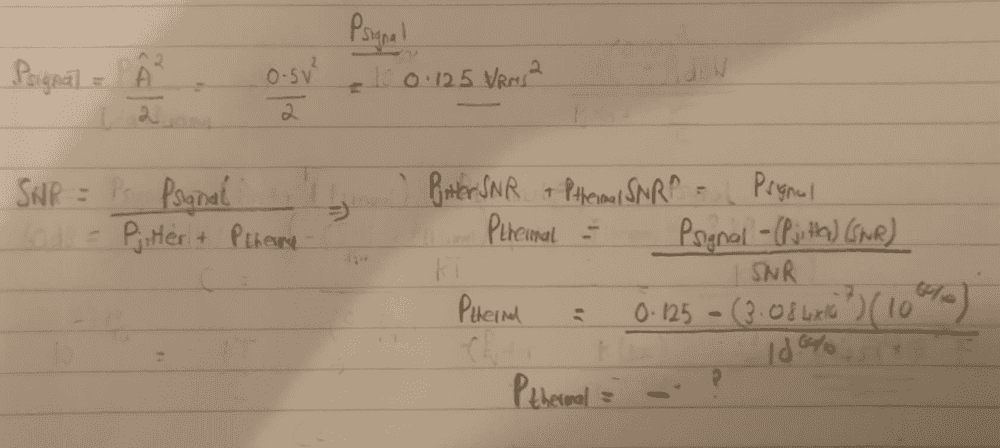 Psignal
Psignal = Â²/2 = 0.5V²/2 = 0.125 VRMS²
SNR = Psignal/(Pjitter + Pthermal) => PjitterSNR + PthermalSNR = Psignal
Pthermal = (Psignal - (Pjitter)(SNR))/SNR
Ptherml = (0.125 - (3.084x10⁻⁷)(10^60/10))/10^60/10
Pthermal = - ?